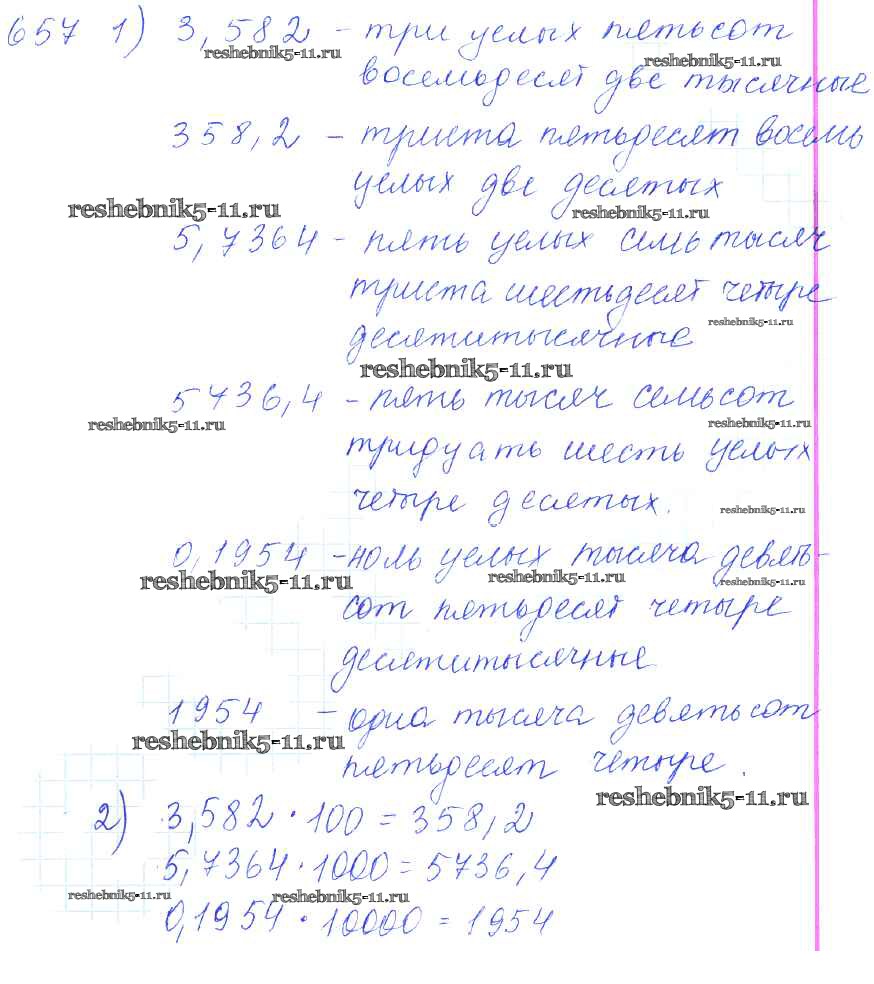 657 1) 3,582 - три целых пятьсот
reshebnik5-11.ru reshebnik5-11.ru
восемьдесят две тысячные
358,2 - триста пятьдесят восемь
целых две десятых
reshebnik5-11.ru reshebnik5-11.ru
5,7364 - пять целых семь тысяч
триста шестьдесят четыре
reshebnik5-11.ru
десятитысячные
reshebnik5-11.ru
5736,4 - пять тысяч семьсот
reshebnik5-11.ru reshebnik5-11.ru
тридцать шесть целых
четыре десятых.
reshebnik5-11.ru
0,1954 - ноль целых тысяча девять-
reshebnik5-11.ru reshebnik5-11.ru reshebnik5-11.ru
сот пятьдесят четыре
десятитысячные
1954 - одна тысяча девятьсот
reshebnik5-11.ru
пятьдесят четыре.
reshebnik5-11.ru
2) 3,582 · 100 = 358,2
5,7364 · 1000 = 5736,4
reshebnik5-11.ru reshebnik5-11.ru
0,1954 · 10000 = 1954